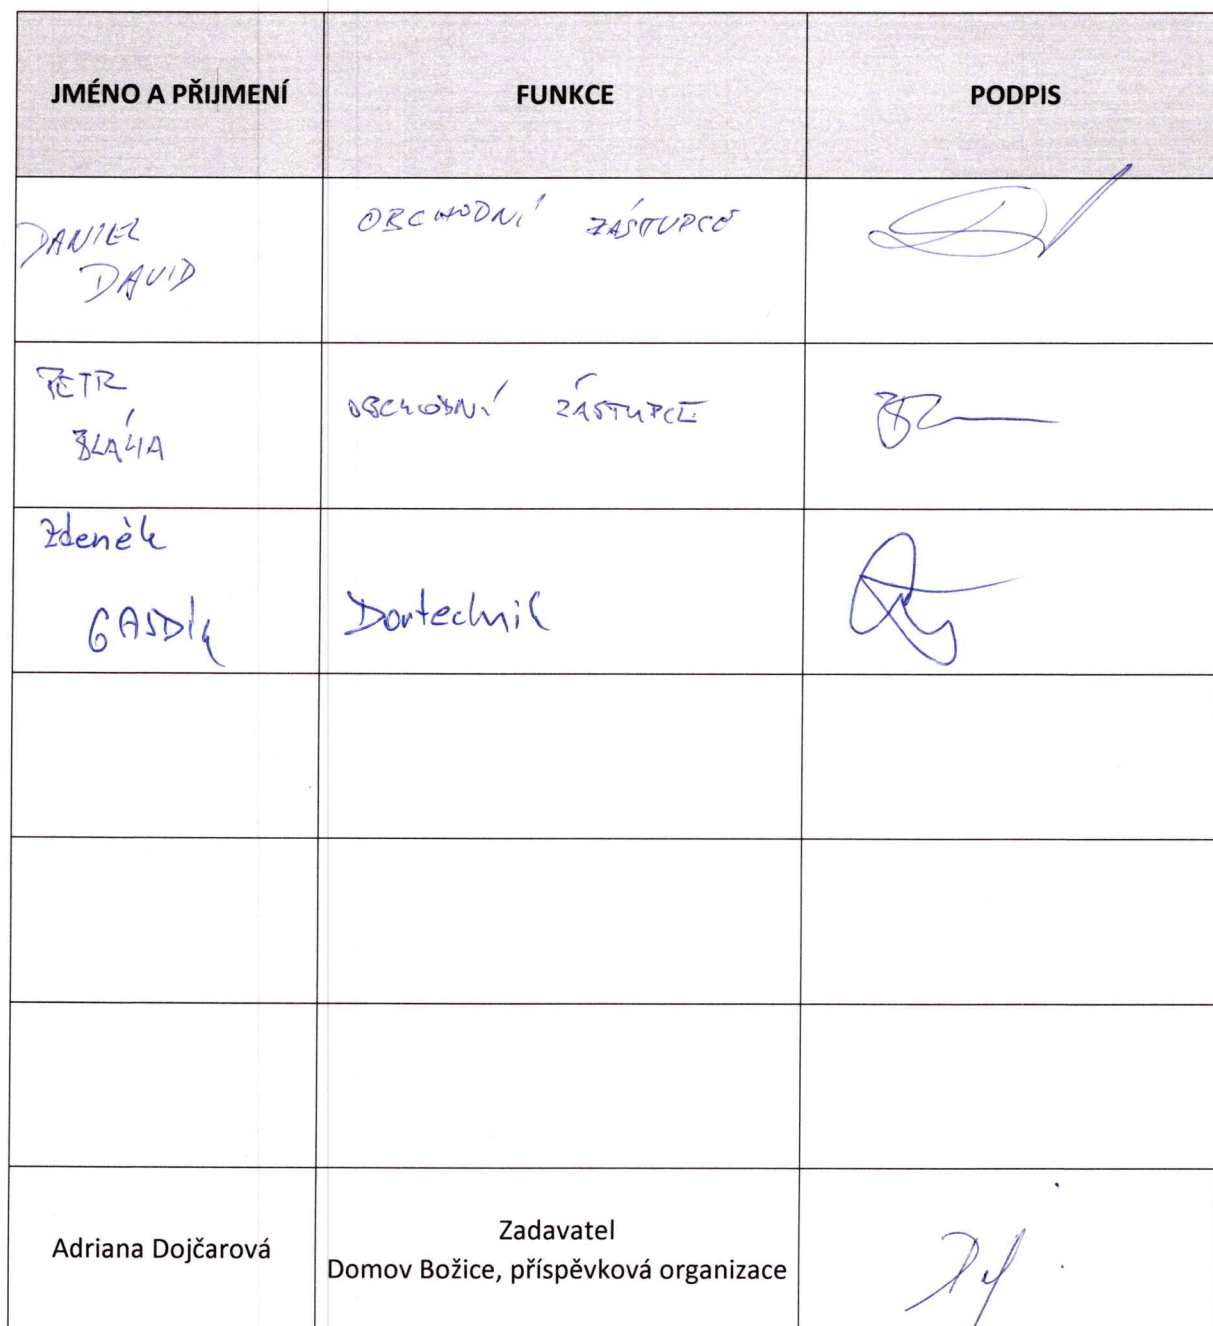 JMÉNO A PŘIJMENÍ
FUNKCE
PODPIS
DANIEL
DAVID
OBCHODNÍ ZÁSTUPCE
PETR
BLÁHA
OBCHODNÍ ZÁSTUPCE
Zdeněk
GASDÍK
Adriana Dojčarová
Zadavatel
Domov Božice, příspěvková organizace